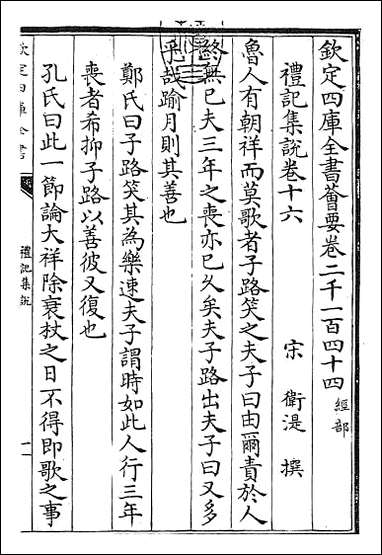 欽定四庫全書薈要卷二千一百四十四 經部
禮記集說卷十六
宋 衛湜 撰
魯人有朝祥而莫歌者子路笑之夫子曰由爾責於人
終無已夫三年之喪亦已久矣夫子路出夫子曰又多
乎哉踰月則其善也
鄭氏曰子路笑其為樂速夫子謂時如此人行三年
喪者希抑子路以善彼又復也
孔氏曰此一節論大祥除衰杖之日不得即歌之事
欽定四庫全書
禮記集說
一